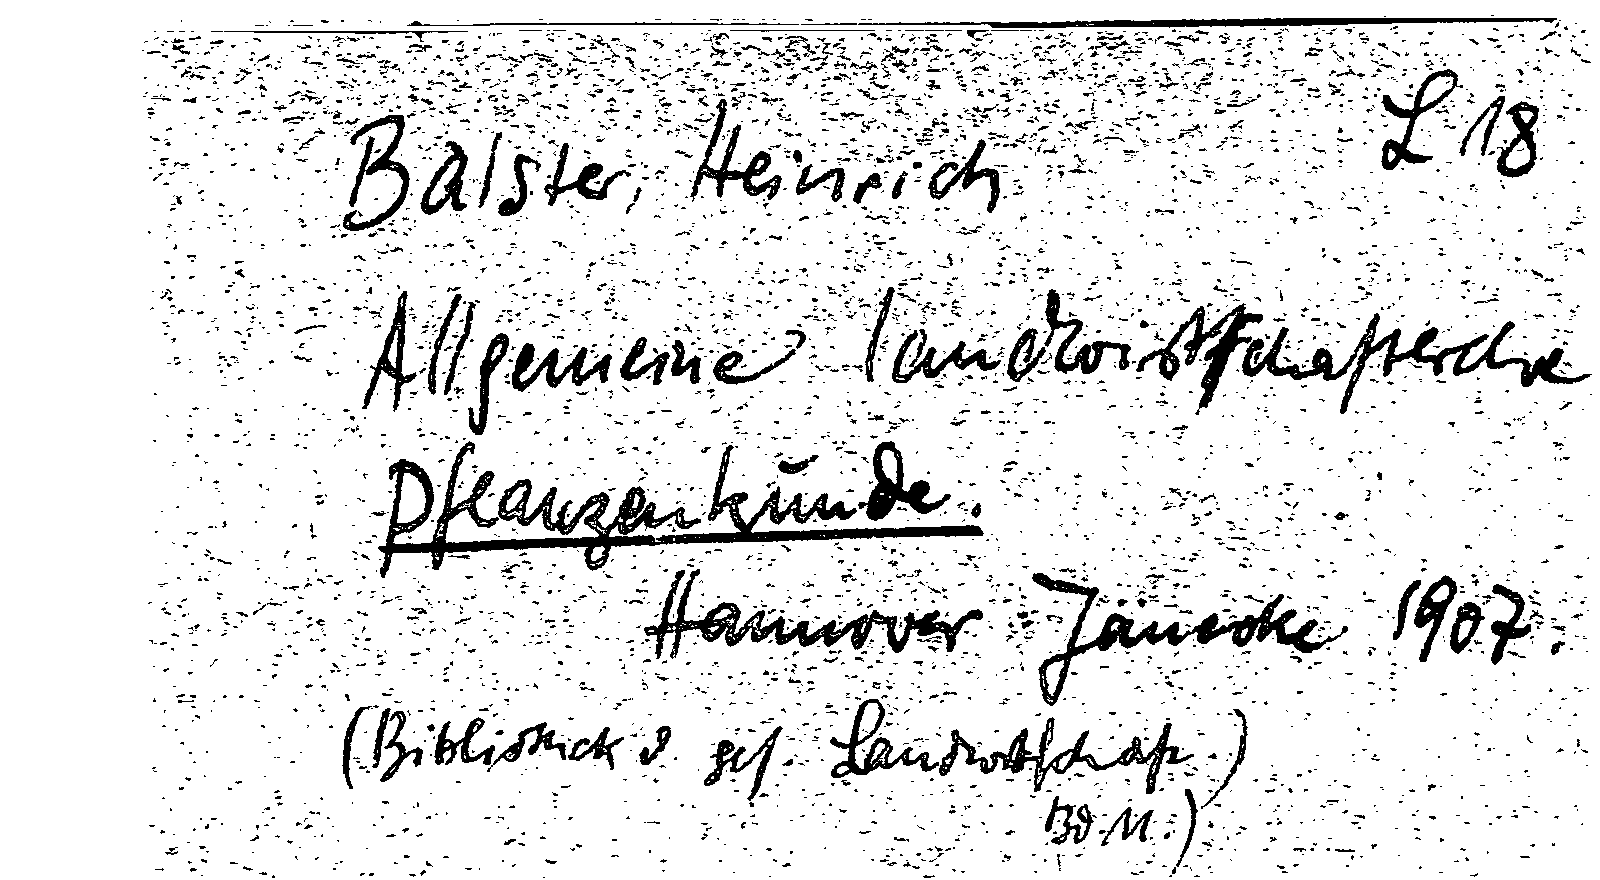 L 18
Balster, Heinrich
Allgemeine landwirtschaftliche
Pflanzenkunde.
Hannover Jänecke 1907.
(Bibliothek d ges. Landwirtschaft.)
Bd. 11.)